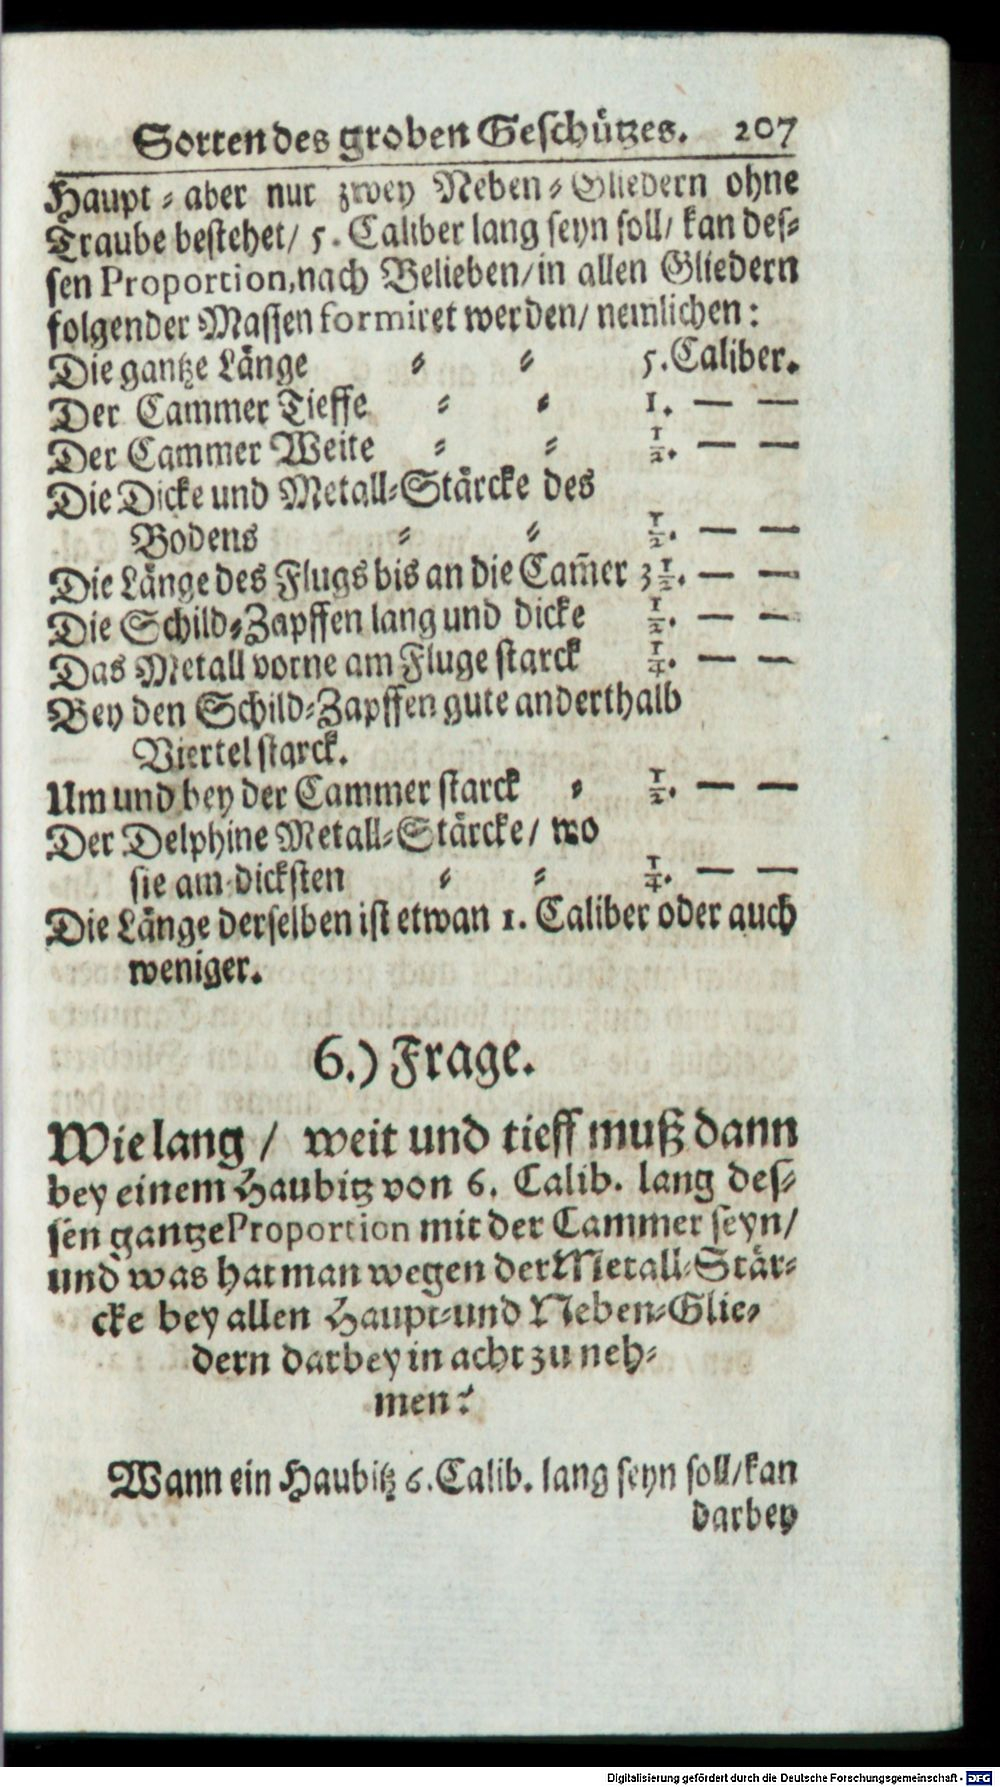 Sorten des groben Geschützes. 207
Haupt- aber nur zwey Neben-Gliedern ohne
Traube bestehet/ 5. Caliber lang seyn soll/ kan des-
sen Proportion, nach Belieben/ in allen Gliedern
folgender Massen formiret werden/ nemlichen:
Die gantze Länge - - 5. Caliber.
Der Cammer Tieffe - - 1. — —
Der Cammer Weite - - 1/2. — —
Die Dicke und Metall-Stärcke des
Bodens - - 1/2. — —
Die Länge des Flugs bis an die Cam̃er 3 1/2. — —
Die Schild-Zapffen lang und dicke 1/2. — —
Das Metall vorne am Fluge starck 1/4. — —
Bey den Schild-Zapffen gute anderthalb
Viertel starck.
Um und bey der Cammer starck - 1/2. — —
Der Delphine Metall-Stärcke/ wo
sie am dicksten - - 1/4. — —
Die Länge derselben ist etwan 1. Caliber oder auch
weniger.
6.) Frage.
Wie lang / weit und tieff muß dann
bey einem Haubitz von 6. Calib. lang des-
sen gantze Proportion mit der Cammer seyn/
und was hat man wegen der Metall-Stär-
cke bey allen Haupt- und Neben-Glie-
dern darbey in acht zu neh-
men?
Wann ein Haubitz 6. Calib. lang seyn soll/ kan
darbey
Digitalisierung gefördert durch die Deutsche Forschungsgemeinschaft - DFG